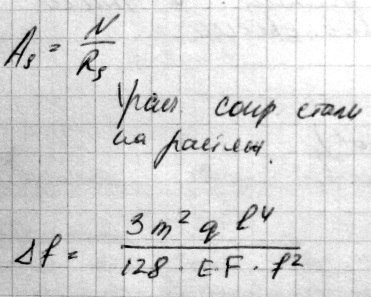 A_s = N / R_s
расч. сопр стали
на растяж.
Δf = 3m² q l⁴ / 128 · EF · f²